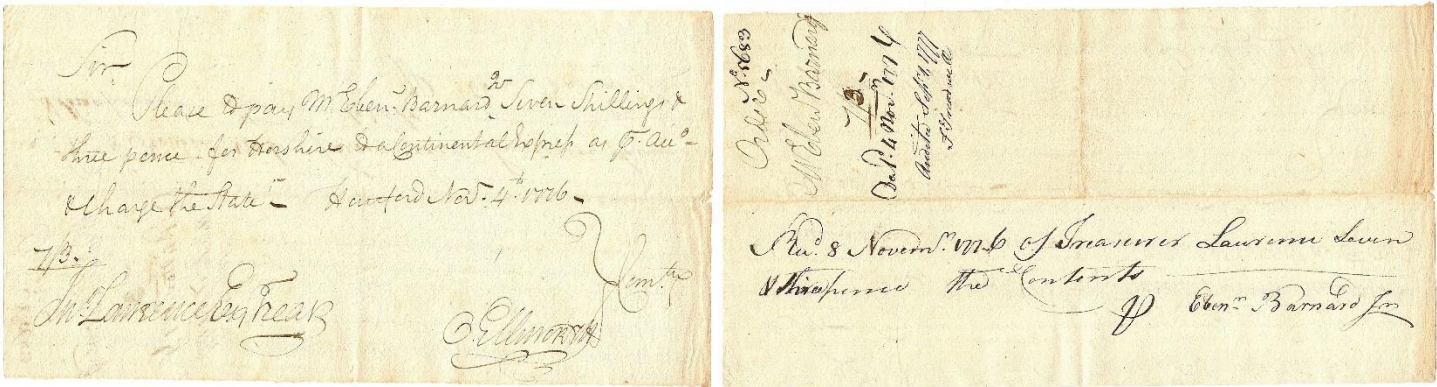 Sir
Please to pay Mr. Eben. Barnard 2d Seven Shillings &
three pence for Horshire to a Continental Express as Pr. Acco.
& Charge the State. Hartford Novr. 4th. 1776.
7/3.
Comtee
Jno. Lawrence Esq Trear
O Ellsworth
Order No. 5683
Mr. Eben Barnard
7/3
Dat. 4 Novr. 1776
Audited Sept. 1777
Recd. 8 Novemr. 1776 of Treasurer Lawrence Seven
& threepence the Contents
Pr Ebenr Barnard Jnr